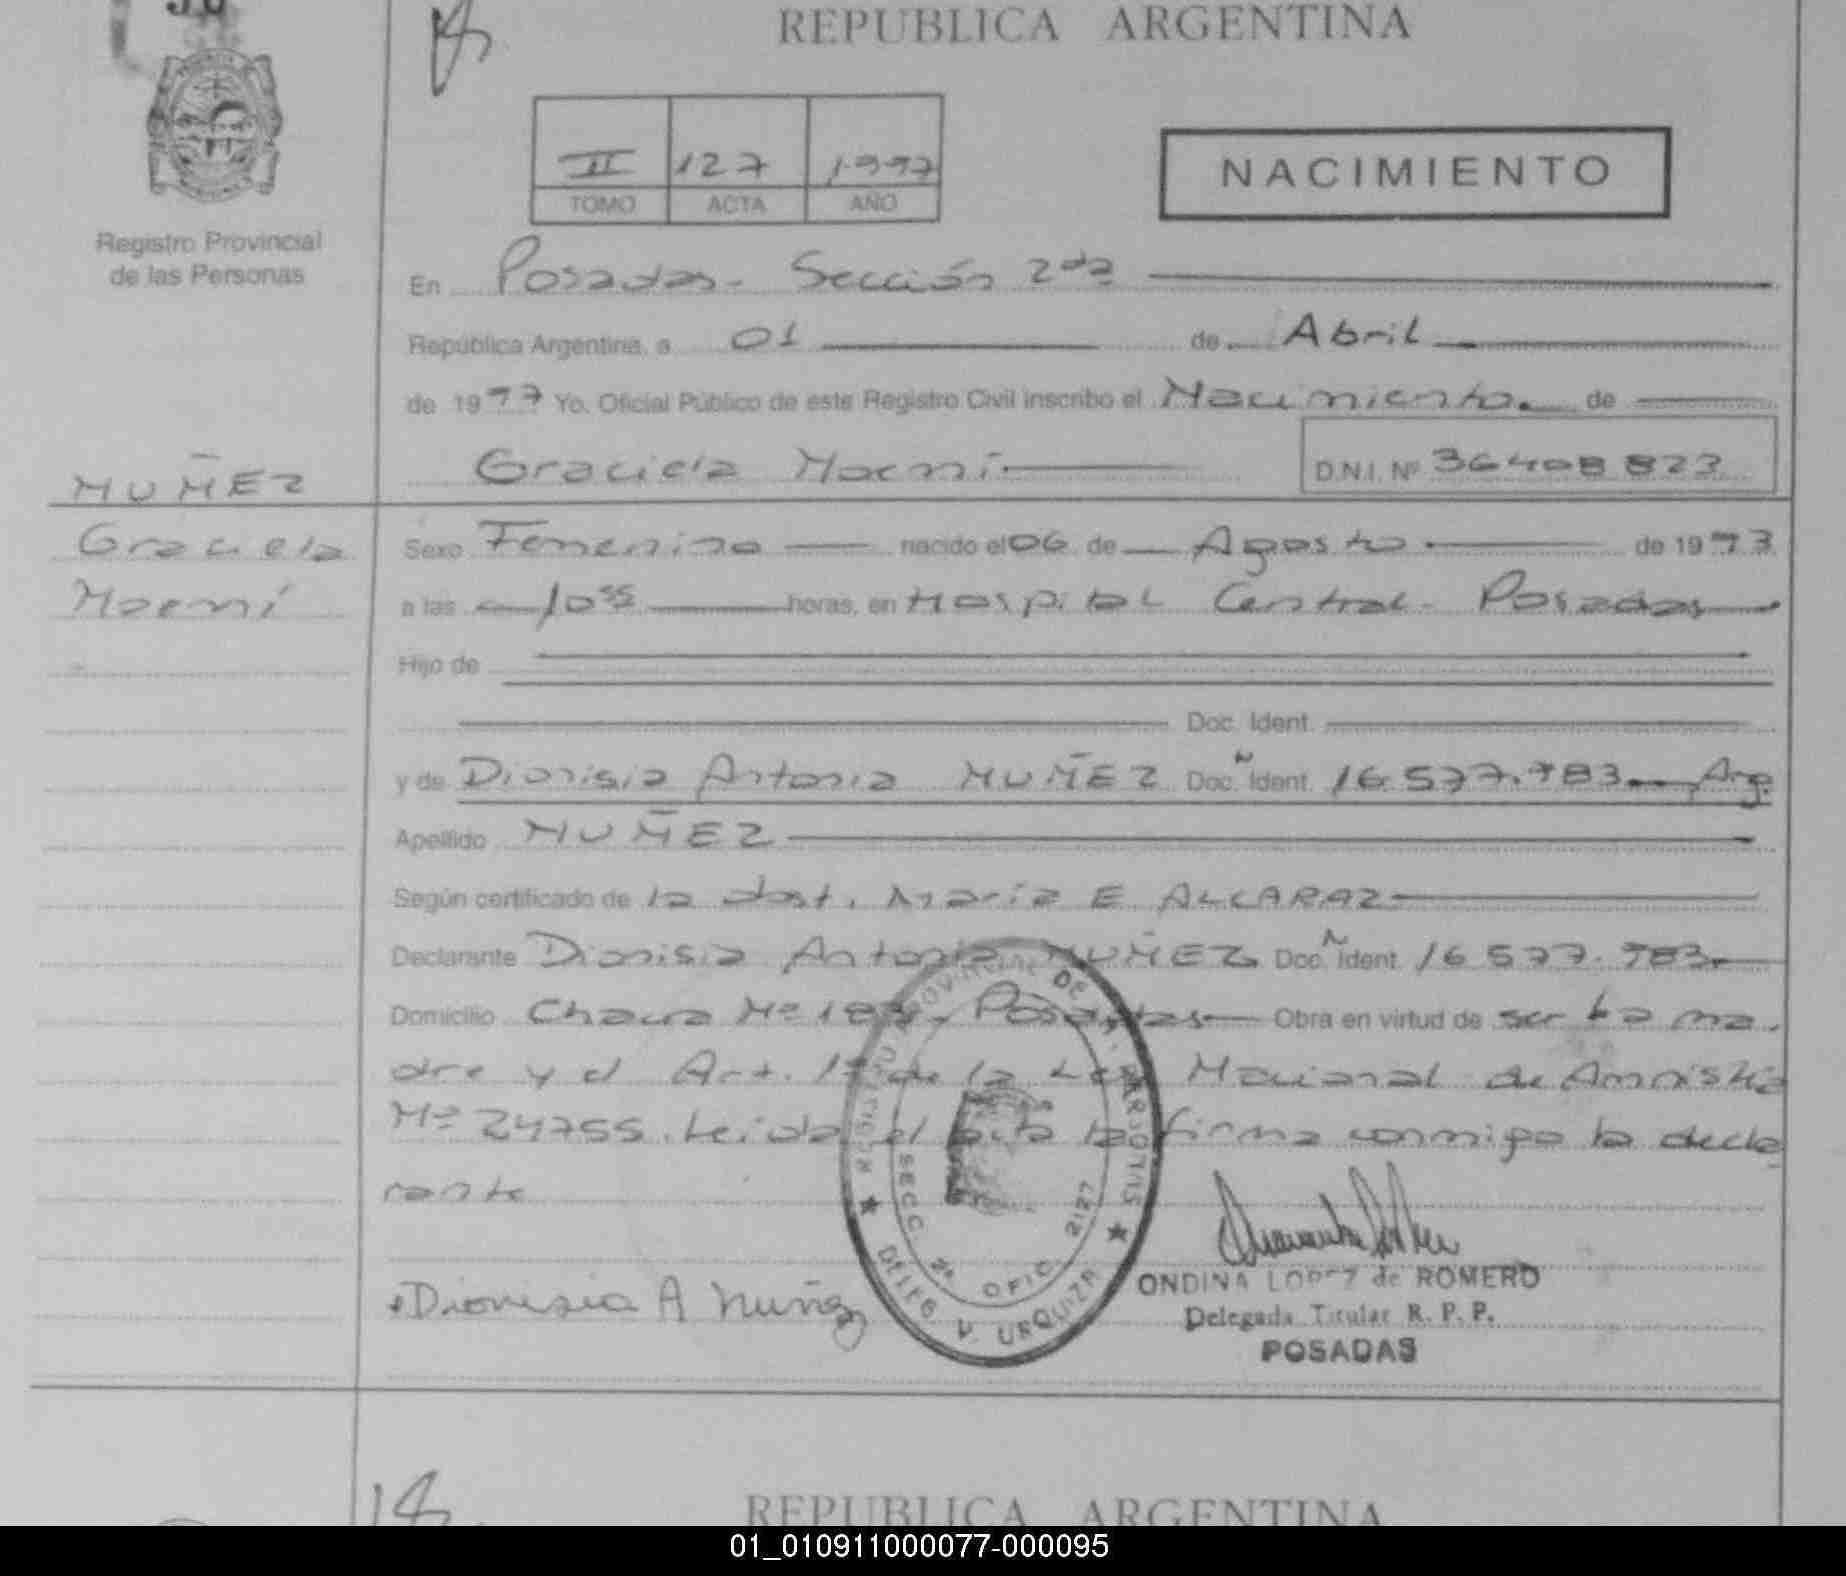 REPUBLICA ARGENTINA
II 127 1997
TOMO ACTA AÑO
NACIMIENTO
Registro Provincial
de las Personas
En Posadas - Sección 2da
República Argentina, a 01 de Abril
de 1997 Yo, Oficial Público de este Registro Civil inscribo el Nacimiento de
Graciela Noemí D.N.I. Nº 36408823
NUÑEZ
Graciela
Noemí
Sexo Femenino nacido el 06 de Agosto de 1993
a las 10 horas, en Hospital Central - Posadas
Hijo de
Doc. Ident.
y de Dionisia Antonia NUÑEZ Doc. Ident. 16.577.983 Arg.
Apellido NUÑEZ
Según certificado de la obst. María E ALCARAZ
Declarante Dionisia Antonia NUÑEZ Doc. Ident. 16.577.983
Domicilio Chacra Nº Posadas Obra en virtud de ser la ma
dre y el Art. 1º de la Ley Nacional de Amnistia
Nº 24755. Leida el acta la firma conmigo la decla
rante
REGISTRO PROVINCIAL DE LAS PERSONAS
SECC. 2ª OFIC. 2127
DELEG. V. URQUIZA
Dionisia A Nuñez
ONDINA LOPEZ de ROMERO
Delegada Titular R. P. P.
POSADAS
REPUBLICA ARGENTINA
01_010911000077-000095